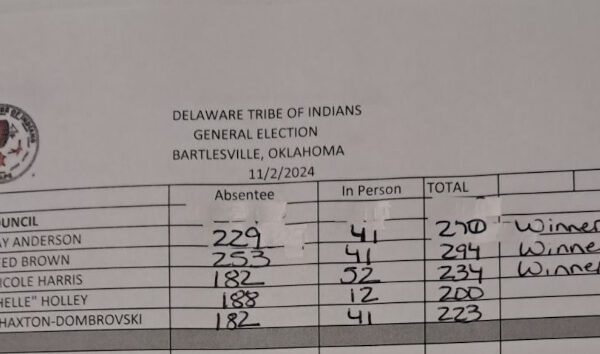 DELAWARE TRIBE OF INDIANS
GENERAL ELECTION
BARTLESVILLE, OKLAHOMA
11/2/2024
Absentee In Person TOTAL
OUNCIL
AY ANDERSON 229 41 270 Winner
EED BROWN 253 41 294 Winner
ICOLE HARRIS 182 52 234 Winner
HELLE" HOLLEY 188 12 200
HAXTON-DOMBROVSKI 182 41 223